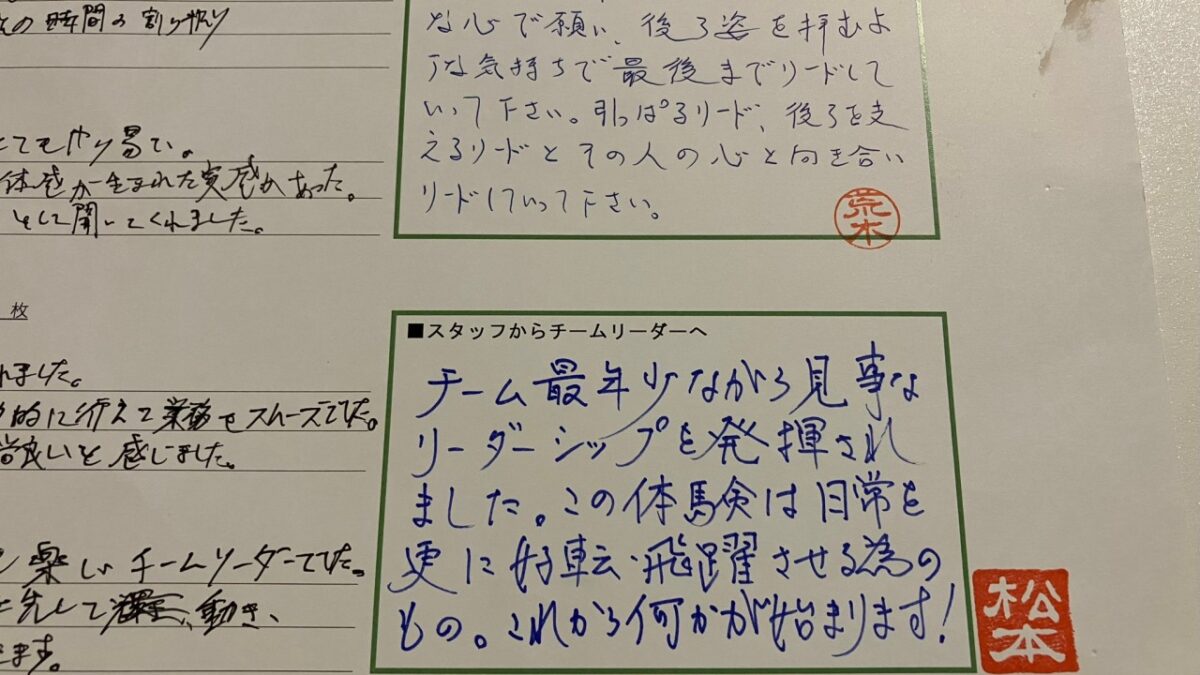 の時間の割りやり
とてもやり易い。
体感が生まれた実感があった。
として聞いてくれました。
枚
れました。
的に行えて業務もスムーズでした。
良いと感じました。
楽しいチームリーダーでした。
先して 動き、
きます。
な心で願い、後ろ姿を拝むよ
うな気持ちで最後までリードして
いって下さい。引っぱるリード、後ろを支
えるリードとその人の心と向き合い
リードしていって下さい。
荒木
■スタッフからチームリーダーへ
チーム最年少ながら見事な
リーダーシップを発揮され
ました。この体験は日常を
更に好転・飛躍させる為の
もの。これから何かが始まります!
松本